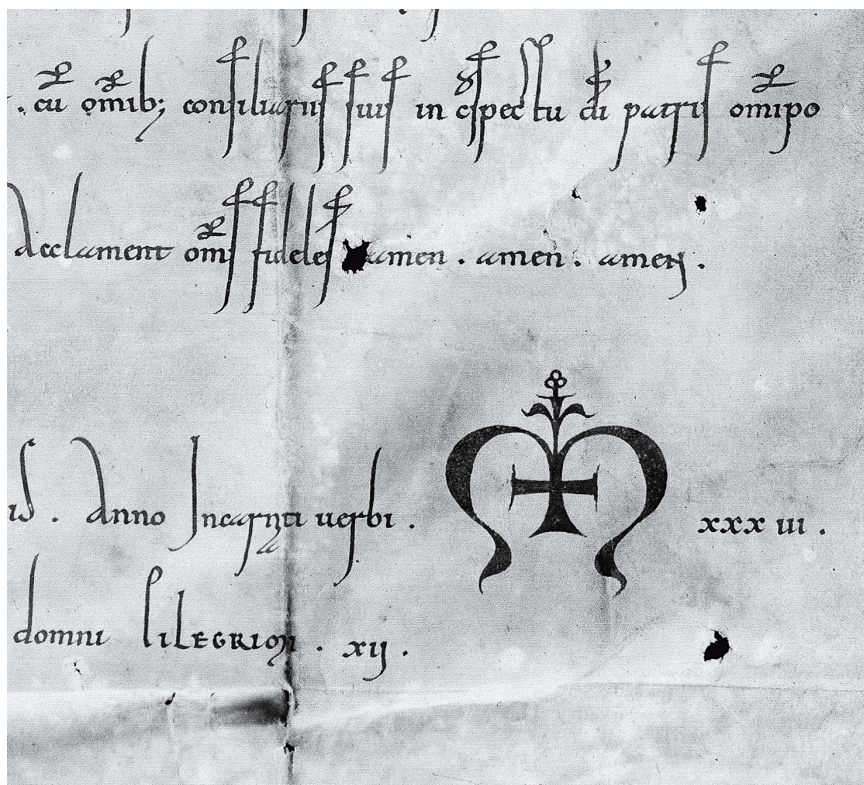 . cu͞ om͞ib; consiliariis suis in c͞spectu d͞i patris om͞ipo
Acclament om͞s fideles amen . amen . amen .
is . Anno Incarn͞ti uerbi . M xxx iii .
domni LILEGRIONI . xij .